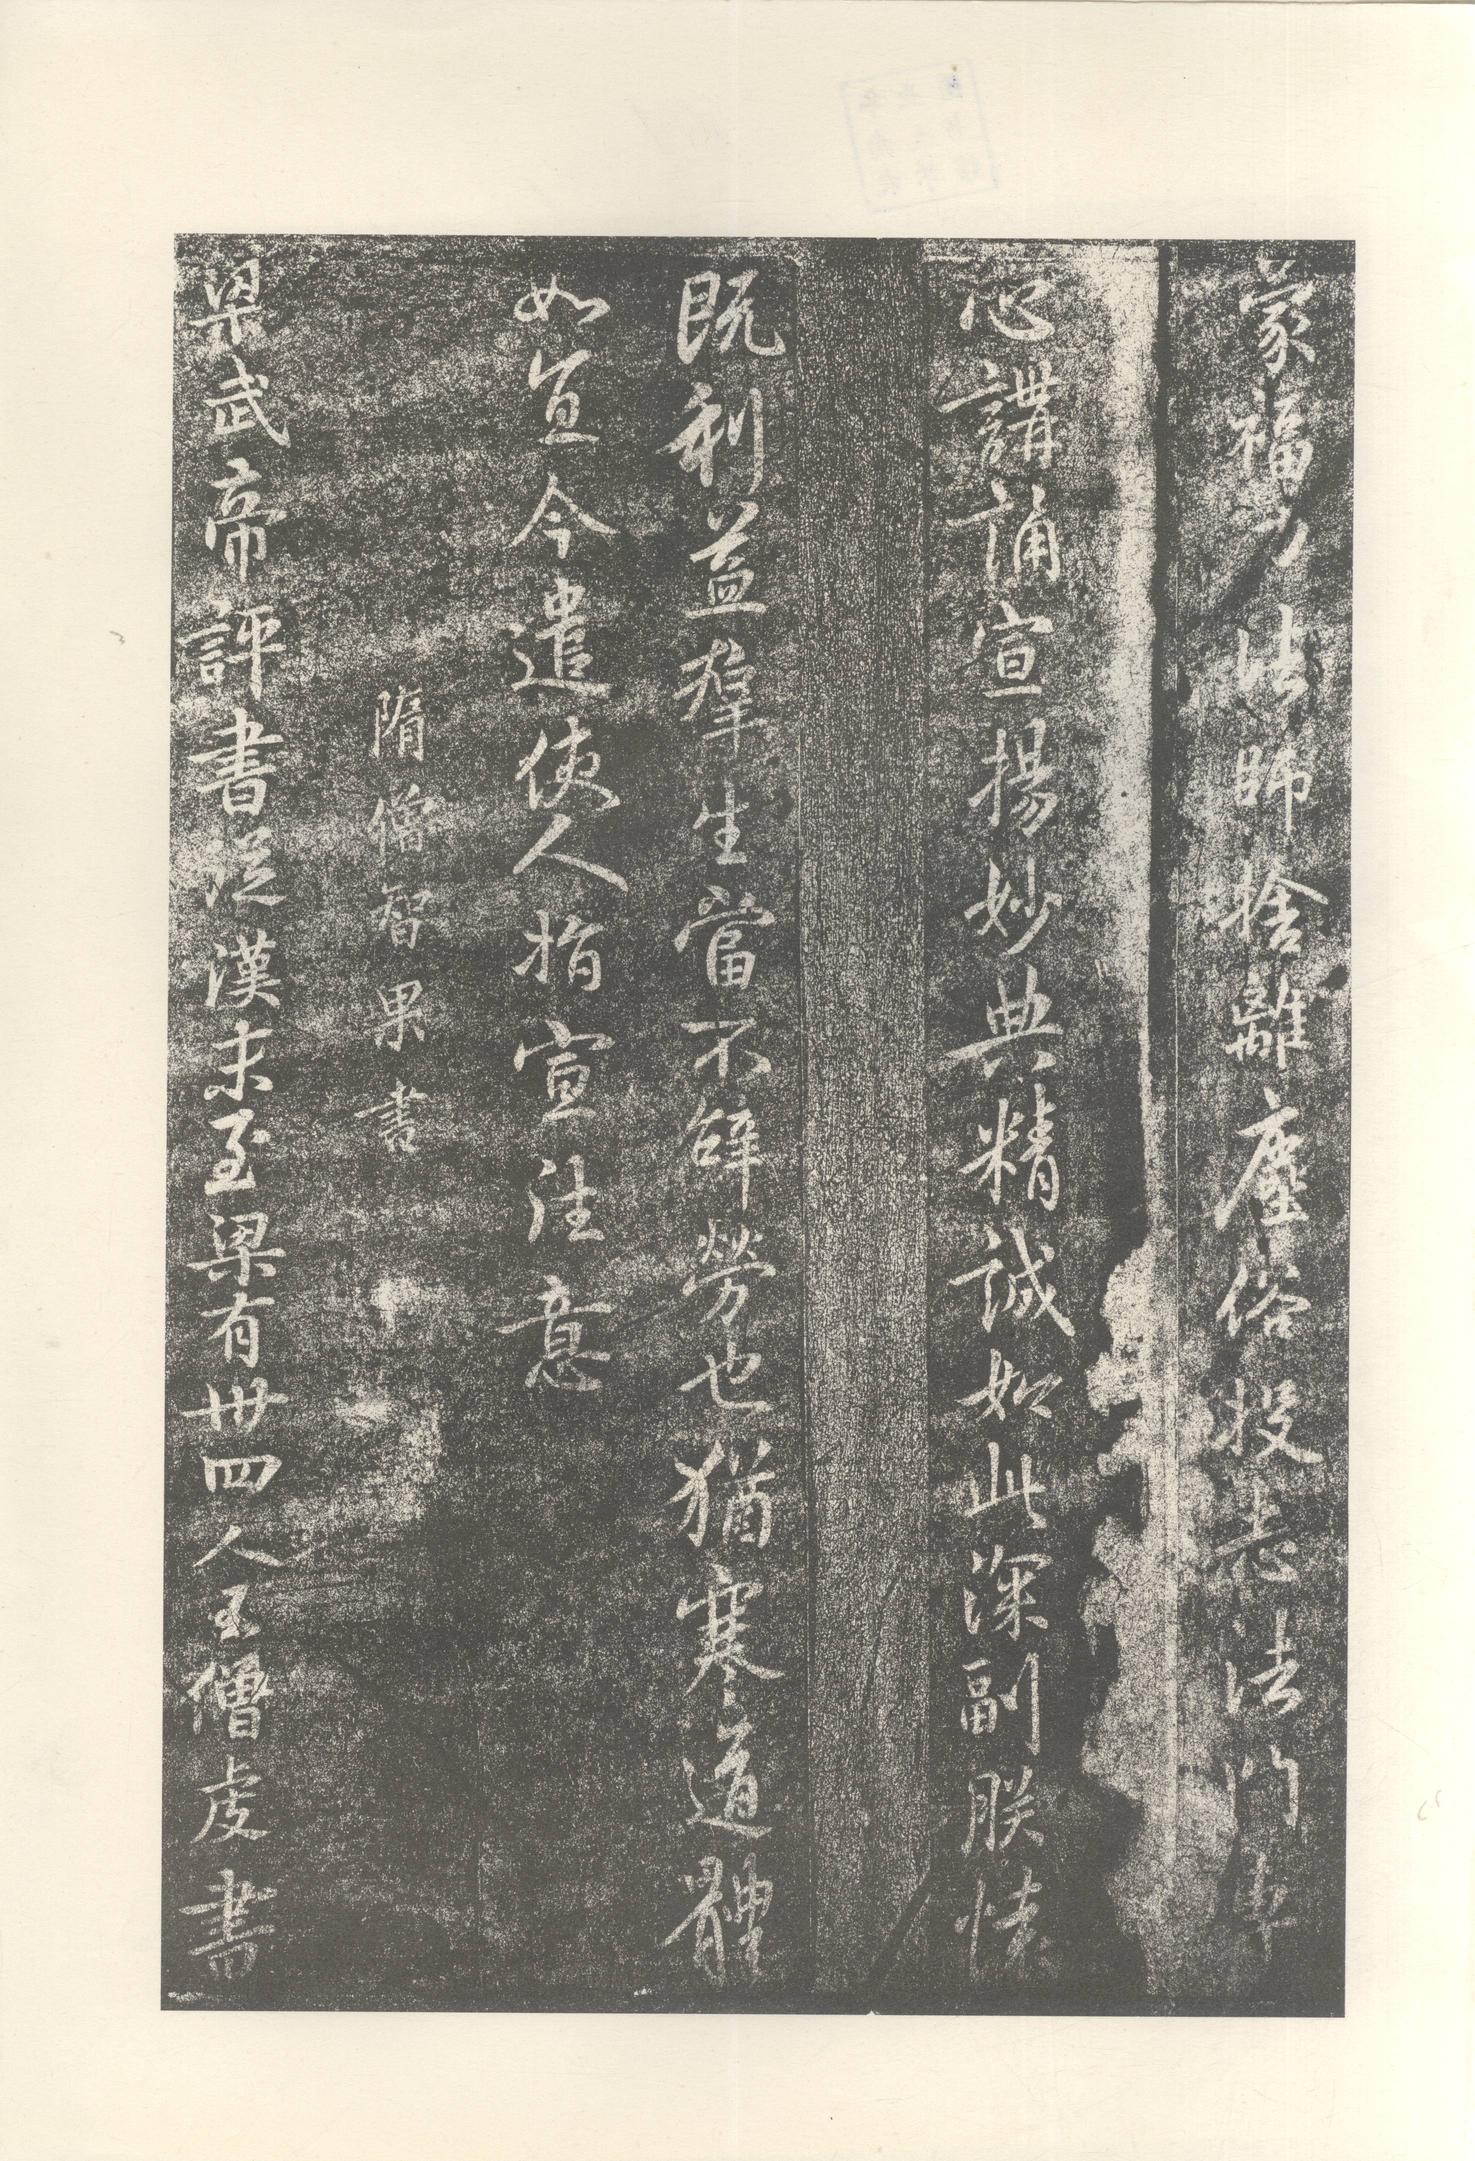 蒙福力法師捨離塵俗投志法門專
心講誦宣揚妙典精誠如此深副朕懷
既利益羣生當不辞勞也猶寒道體
如宜今遣使人指宣往意
隋僧智果書
梁武帝評書從漢末至梁有卅四人王僧虔書